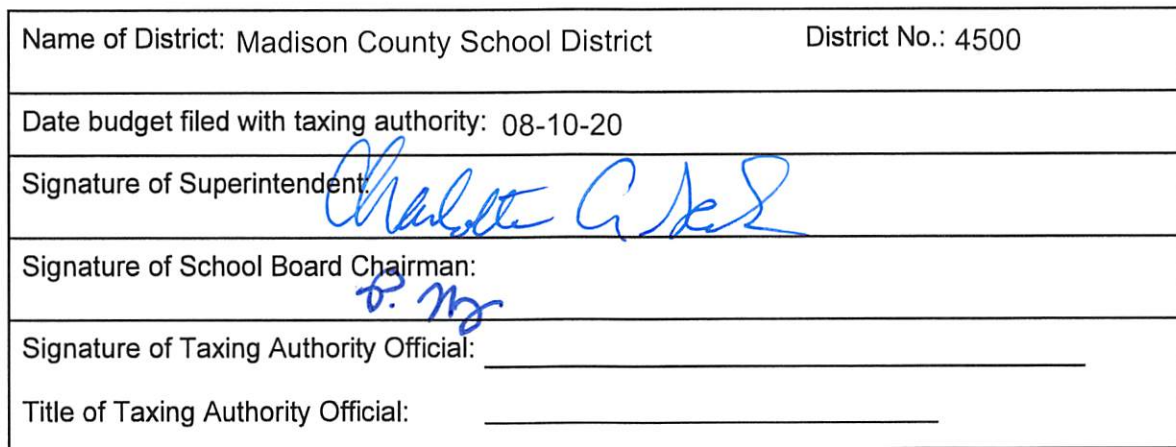 Name of District: Madison County School District District No.: 4500
Date budget filed with taxing authority: 08-10-20
Signature of Superintendent:
Charlotte A
Signature of School Board Chairman:
P.
Signature of Taxing Authority Official:
Title of Taxing Authority Official: